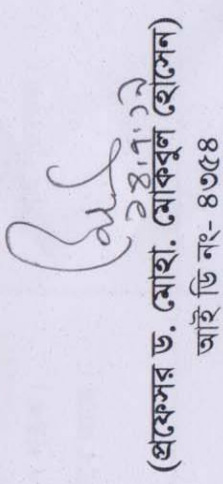 ১৪.৭.১২
(প্রফেসর ড. মোহা. মোকবুল হোসেন)
আই ডি নং- ৪৩৫৪